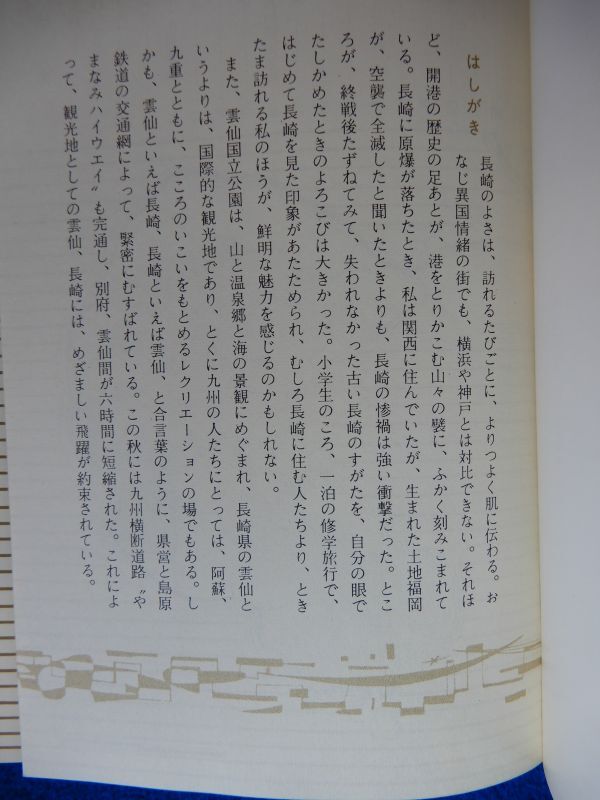 はしがき
長崎のよさは、訪れるたびごとに、よりつよく肌に伝わる。お
なじ異国情緒の街でも、横浜や神戸とは対比できない。それほ
ど、開港の歴史の足あとが、港をとりかこむ山々の襞に、ふかく刻みこまれて
いる。長崎に原爆が落ちたとき、私は関西に住んでいたが、生まれた土地福岡
が、空襲で全滅したと聞いたときよりも、長崎の惨禍は強い衝撃だった。とこ
ろが、終戦後たずねてみて、失われなかった古い長崎のすがたを、自分の眼で
たしかめたときのよろこびは大きかった。小学生のころ、一泊の修学旅行で、
はじめて長崎を見た印象があたためられ、むしろ長崎に住む人たちより、とき
たま訪れる私のほうが、鮮明な魅力を感じるのかもしれない。
また、雲仙国立公園は、山と温泉郷と海の景観にめぐまれ、長崎県の雲仙と
いうよりは、国際的な観光地であり、とくに九州の人たちにとっては、阿蘇、
九重とともに、こころのいこいをもとめるレクリエーションの場でもある。し
かも、雲仙といえば長崎、長崎といえば雲仙、と合言葉のように、県営と島原
鉄道の交通網によって、緊密にむすばれている。この秋には九州横断道路〝や
まなみハイウエイ〟も完通し、別府、雲仙間が六時間に短縮された。これによ
って、観光地としての雲仙、長崎には、めざましい飛躍が約束されている。